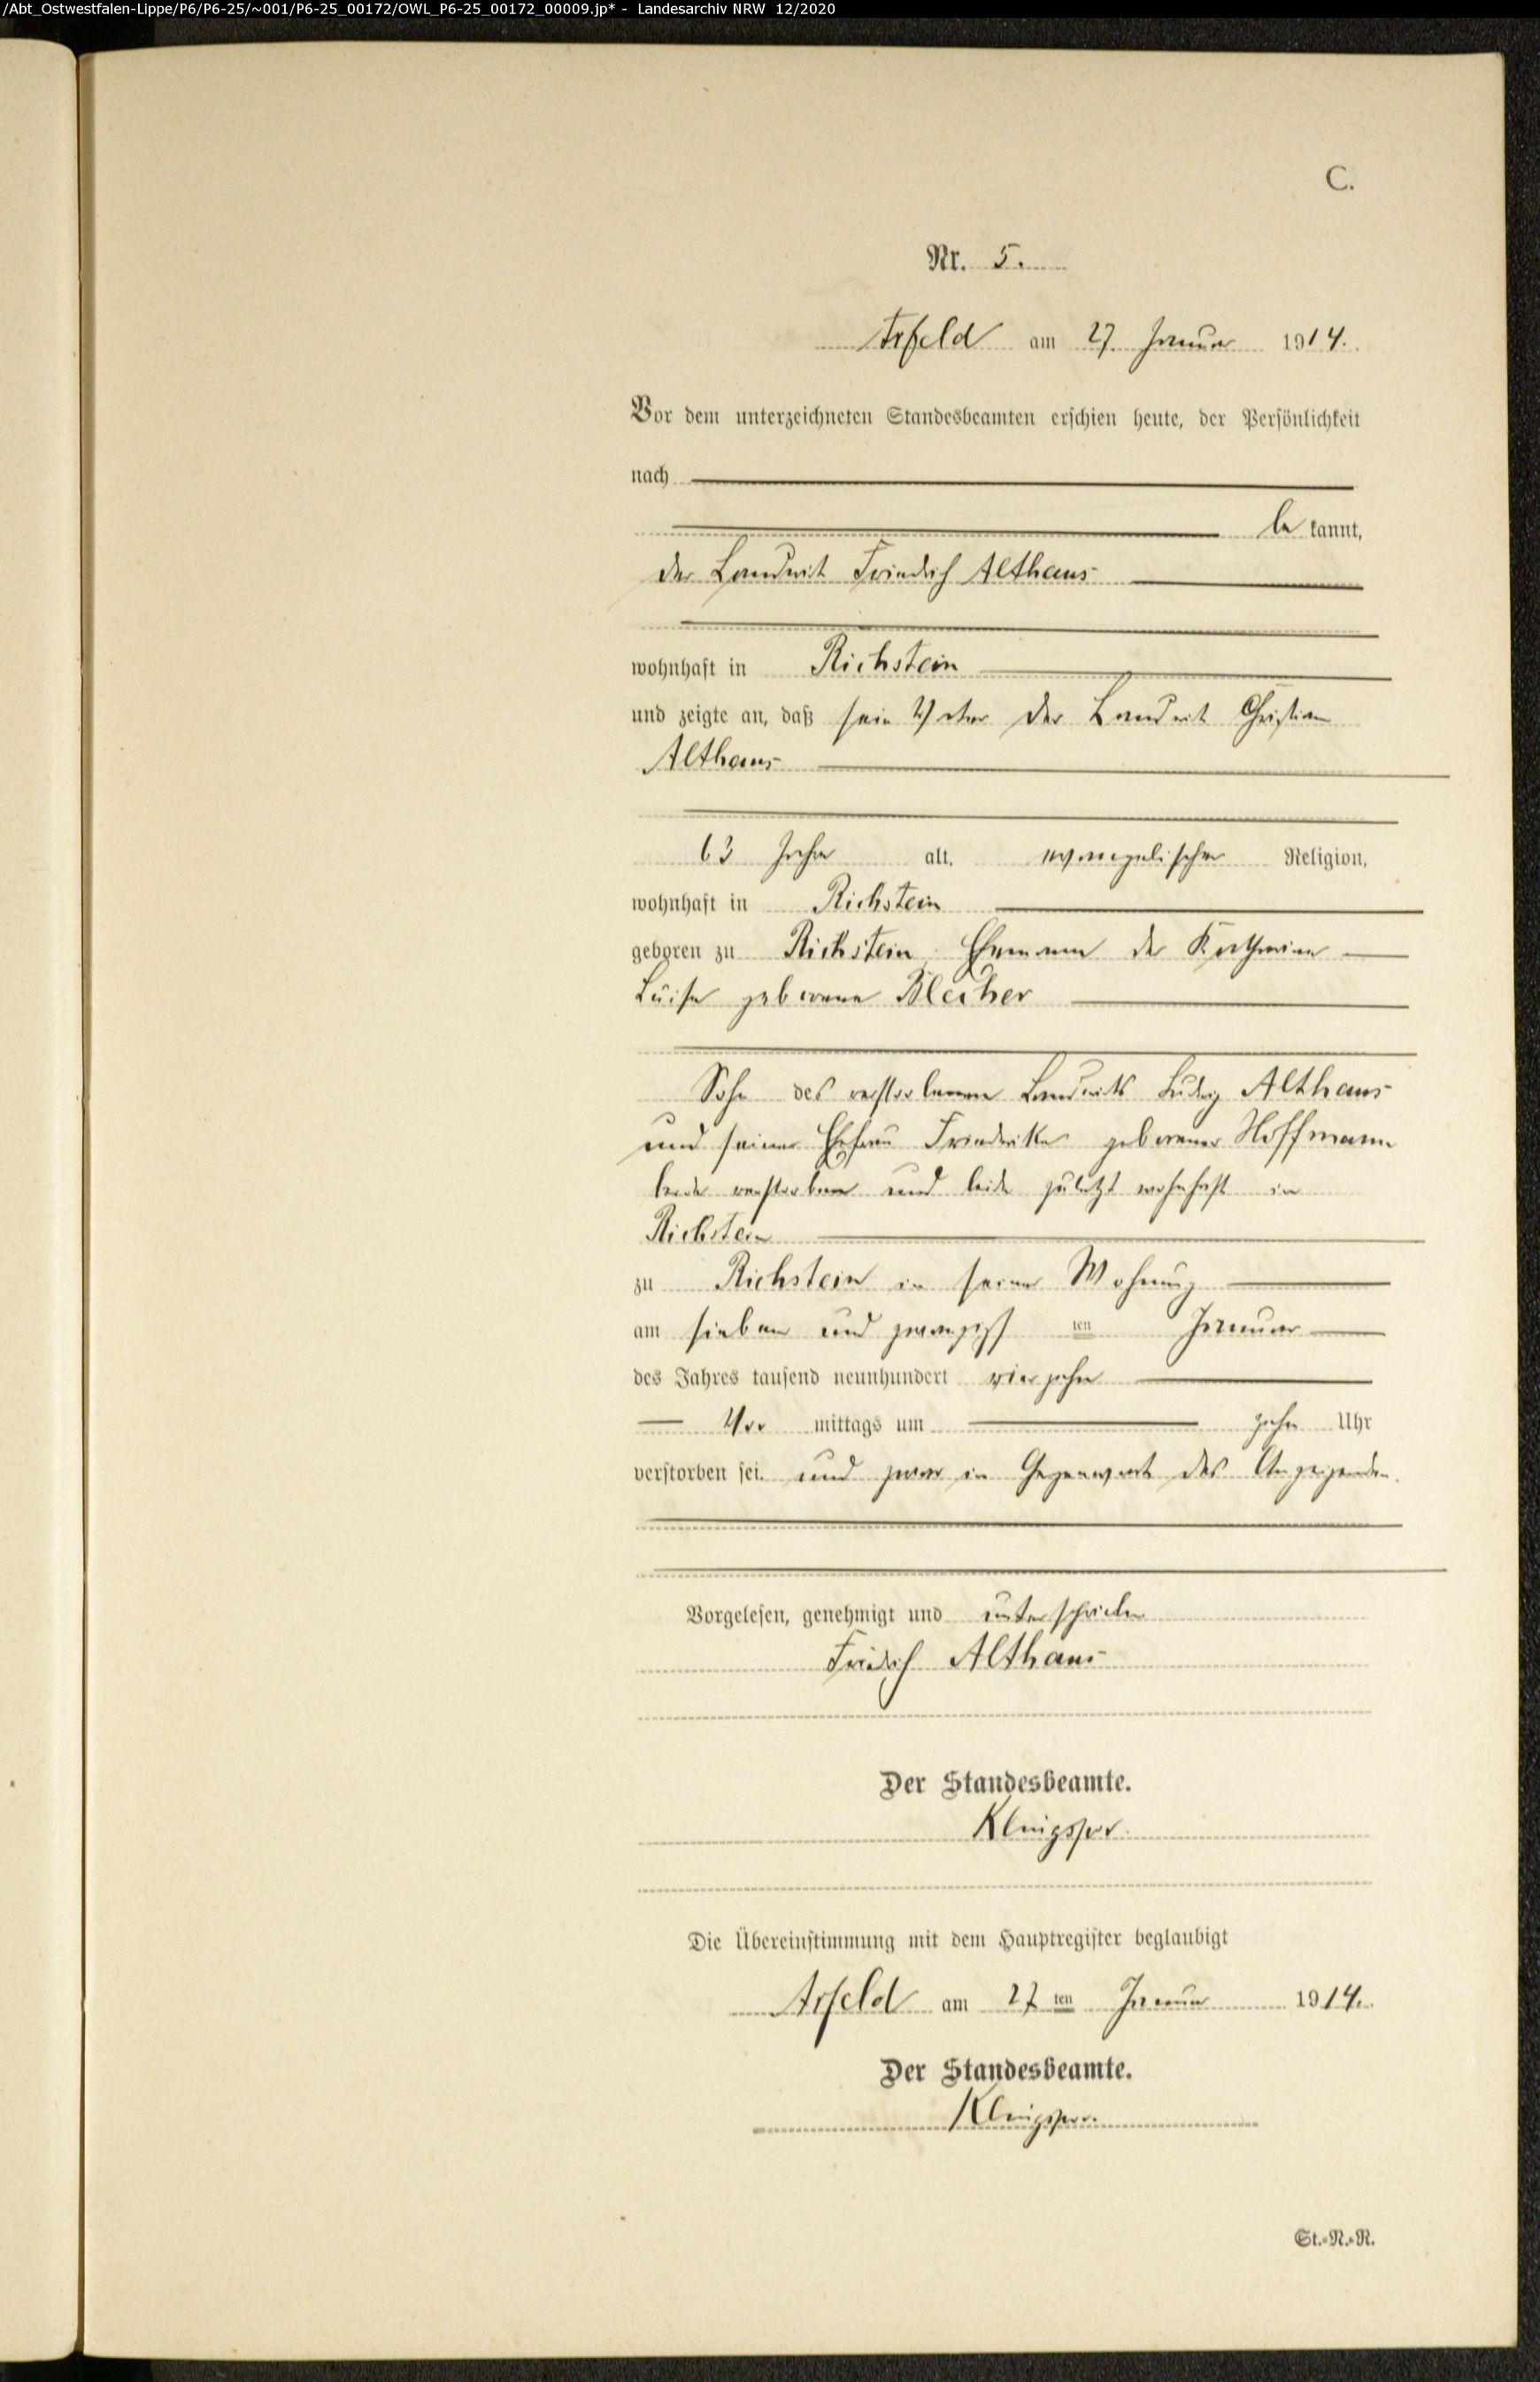 /Abt_Ostwestfalen-Lippe/P6/P6-25/~001/P6-25_00172/OWL_P6-25_00172_00009.jp* - Landesarchiv NRW 12/2020
C.
Nr. 5.
Arfeld am 27. Januar 1914.
Vor dem unterzeichneten Standesbeamten erschien heute, der Persönlichkeit
nach
be kannt,
der Landwirt Friedrich Althaus
wohnhaft in Richstein
und zeigte an, daß sein Vater der Landwirt Christian
Althaus
63 Jahre alt, evangelischer Religion,
wohnhaft in Richstein
geboren zu Richstein Ehemann der Katharine
Luise geborene Blecher
Sohn des verstorbenen Landwirts Ludwig Althaus
und seiner Ehefrau Friederike geborener Hoffmann
beide verstorben und beide zuletzt wohnhaft in
Richstein
zu Richstein in seiner Wohnung
am sieben und zwanzigst ten Januar
des Jahres tausend neunhundert vierzehn
Vor mittags um zehn Uhr
verstorben sei. und zwar in Gegenwart des Anzeigenden.
Vorgelesen, genehmigt und unterschrieben
Friedrich Althaus
Der Standesbeamte.
Klingspor.
Die Übereinstimmung mit dem Hauptregister beglaubigt
Arfeld am 27 ten Januar 1914.
Der Standesbeamte.
Klingspor.
St.-N.-R.